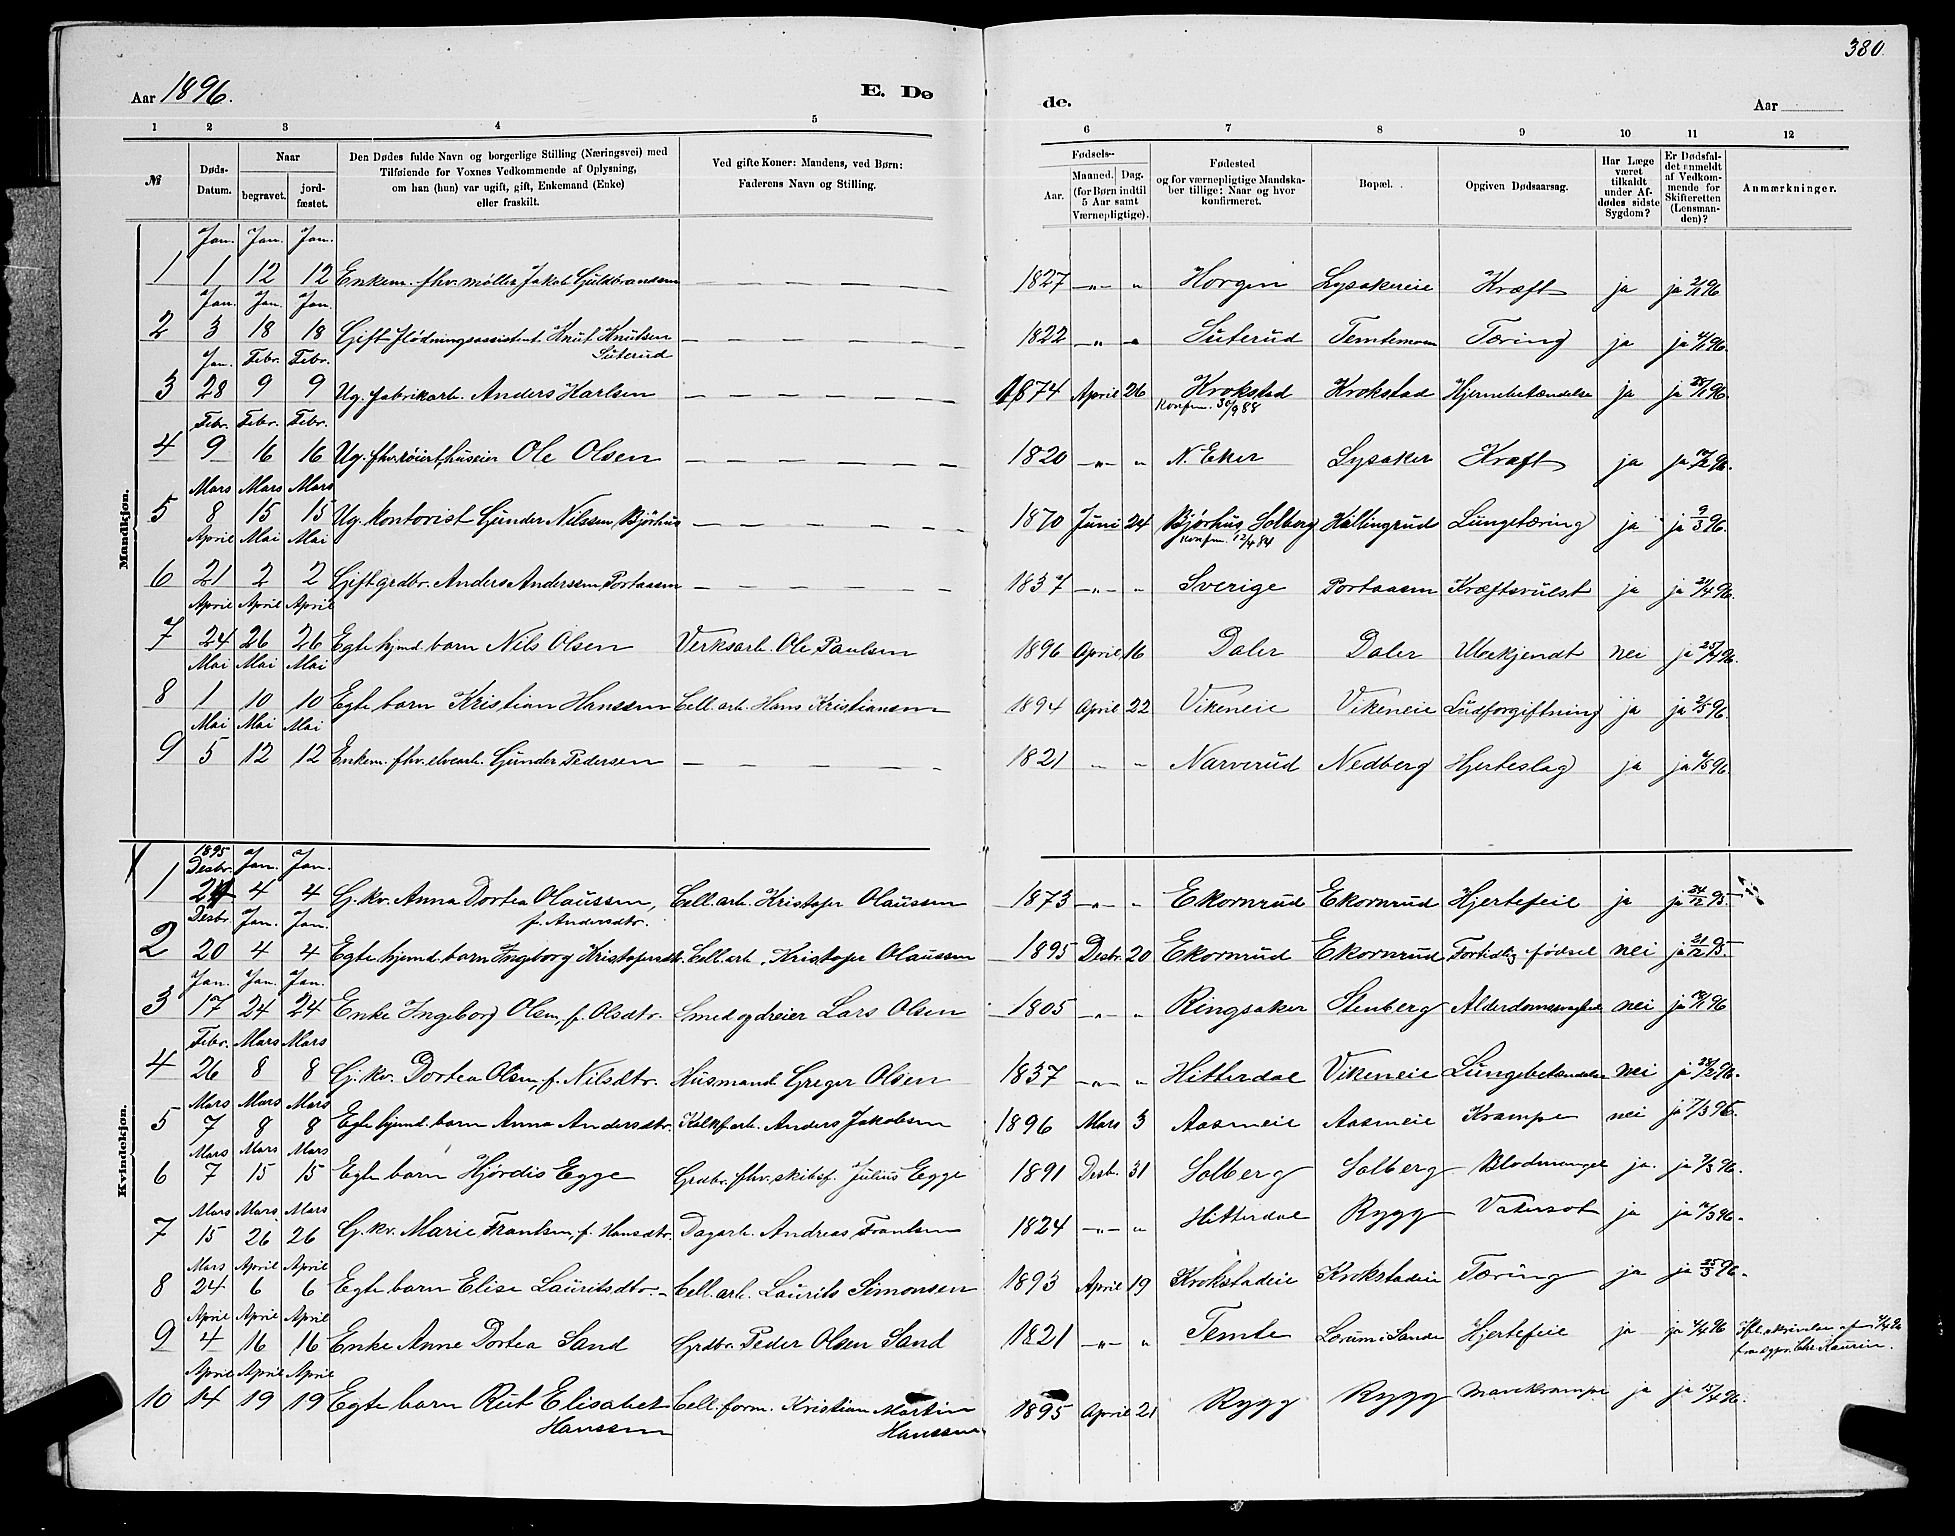 380.
Aar 1896. E. Dø
de. Aar
1 2 3 4 5
6 7 8 9 10 11 12
№ Døds-Datum. Naar begravet. jord-fæstet. Den Dødes fulde Navn og borgerlige Stilling (Næringsvei) med Tilføiende for Voxnes Vedkommende af Oplysning, om han (hun) var ugift, gift, Enkemand (Enke) eller fraskilt. Ved gifte Koner: Mandens, ved Børn: Faderens Navn og Stilling.
Fødsels- Aar. Maaned. Dag. (for Børn indtil 5 Aar samt Værnepligtige). Fødested og for værnepligtige Mandska-ber tillige: Naar og hvor konfirmeret. Bopæl. Opgiven Dødsaarsag. Har Læge været tilkaldt under Af-dødes sidste Sygdom? Er Dødsfal-det anmeldt af Vedkom-mende for Skifteretten (Lensman-den)? Anmærkninger.
Mandkjøn.
Jan. Jan. Jan.
1 1 12 12 Enkem. fhv. møller Jakob Guldbrandsen 1827 Horgen Lysakereie Kræft ja ja 2/1 96
Jan. Jan. Jan.
2 3 18 18 Gift flødningsassistent Knut Knutsen Suterud 1822 Suterud Temtemoen Tæring ja ja 4/1 96.
Jan. Febr. Febr.
3 28 9 9 Ug. fabrikarb. Anders Karlsen 1874 April 26 Krokstad Konfm. 30/9 88 Krokstad Hjernebetændelse ja ja 28/1 96.
Febr. Febr. Febr.
4 9 16 16 Ug. fhv. Ole Olsen 1820 N. Eker Lysaker Kræft ja ja 96.
Mars Mars Mars
5 8 15 15 Ug. kontorist Gunder Nilssen, Bjørhus 1870 Juni 24 Bjørhus, Solberg Konfm. 12/4 84 Hallingrud Lungetæring ja ja 9/3 96.
April Mai Mai
6 21 2 2 Gift grdbr. Anders Anderssen Portaasen 1837 Sverige Portaasen Kræftsvulst ja ja 21/4 96.
April April April
7 24 26 26 Egte hjmd. barn Nils Olsen Verksarb. Ole Paulsen 1896 April 16 Daler Daler Ubekjendt nei ja 25/4 96.
Mai Mai Mai
8 1 10 10 Egte barn Kristian Hanssen Cell. arb. Hans Kristiansen 1894 April 22 Vikeneie Vikeneie Ludforgiftning ja ja 2/5 96.
Mai Mai Mai
9 5 12 12 Enkem. fhv. elvearb. Gunder Pedersen 1821 Narverud Nedberg Hjerteslag ja ja 96.
Kvindekjøn.
1895 Desbr. Jan. Jan.
1 4 4 G. kv. Anna Dortea Olaussen, f. Andersdtr. Cell. arb. Kristofer Olaussen 1873 Ekornrud Ekornrud Hjertefeil ja ja 24/12 95.
Desbr. Jan. Jan.
2 20 4 4 Egte hjemd. barn Ingeborg Kristofersdtr. Cell. arb. Kristofer Olaussen 1895 Desbr. 20 Ekornrud Ekornrud Fortidlig fødsel nei ja 21/12 95.
Jan. Jan. Jan.
3 17 24 24 Enke Ingeborg Olsen, f. Olsdtr. Smed og dreier Lars Olsen 1805 Ringsaker Stenberg Alderdomssvaghed nei ja 96
Febr. Mars Mars
4 26 8 8 G. kv. Dortea Olsen, f. Nilsdtr. Husmand Greger Olsen 1837 Hitterdal Vikeneie Lungebetændelse nei ja 28/2 96.
Mars Mars Mars
5 7 8 8 Egte hjemd. barn Anna Andersdtr. Kalkf. arb. Anders Jakobsen 1896 Mars 3 Aasmeie Aasmeie Krampe nei ja 7/3 96.
Mars Mars Mars
6 7 15 15 Egte barn Hjørdis Egge Grdbr. fhv. skibsf. Julius Egge 1891 Desb. 31 Solberg Solberg Blodmangel ja. ja 9/3 96.
Mars Mars Mars
7 15 26 26 G. kv. Marie Frantsen, f. Hansdtr. Dagarb. Andreas Frantsen 1824 Hitterdal Rygg Vatersot ja ja 96.
Mars April April
8 24 6 6 Egte barn Elise Lauritsdtr. Cell. arb. Laurits Simonsen 1893 April 19 Krokstadeie Krokstadeie Tæring ja ja 25/3 96.
April April April
9 4 16 16 Enke Anne Dortea Sand Grdbr. Peder Olsen Sand 1821 Temte Lorum i Sande Hjertefeil ja ja 96 Ifl. skrivelse af fra sgpr. Chr. Kaurin.
April April April
10 14 19 19 Egte barn Rut Elisabet Hanssen Cell. form. Kristian Martin Hanssen 1895 April 21 Rygg Rygg Marekrampe ja ja 15/4 96.